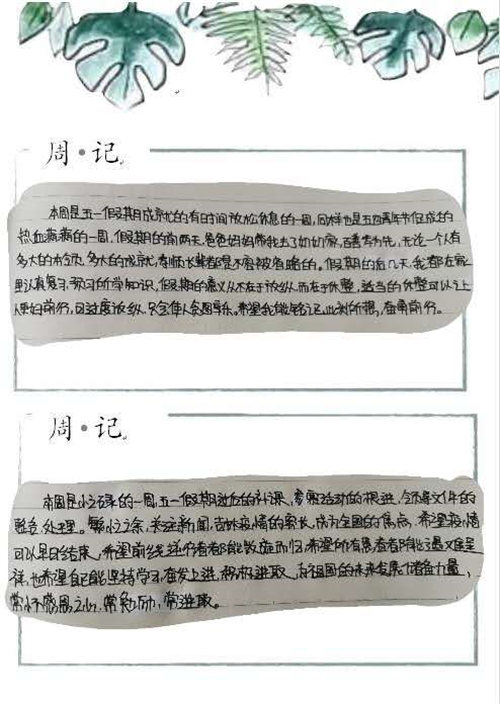 周·记
本周是五一假期成就忙的有时间放松休息的一周,同样也是五四青年节促成的
热血满满的一周。假期的前两天,爸爸妈妈带我去了奶奶家,百善孝为先,无论一个人有
多大的本领,多大的成就,孝师长辈都是不容被省略的。假期的后几天,我都在家
里认真复习,预习所学知识,假期的意义从不在于放纵,而在于休整,适当的休整可以让
人更好前行,过度放纵,只会使人贪图享乐。希望我能够记此刻所想,奋勇前行。
周·记
本周是忙碌的一周,五一假期过后的补课,各职活动的根进,
整合、处理。繁忙之余,关注新闻,疫情的增长,成为全国的焦点,希望疫情
可以早日结束,希望前线逆行者都能凯旋而归,希望所有患者都能遇难呈
祥,也希望自己能坚持学习,奋发上进,积极进取,为祖国的未来发展储备力量,
常怀感恩之心,常勉励,常进取。